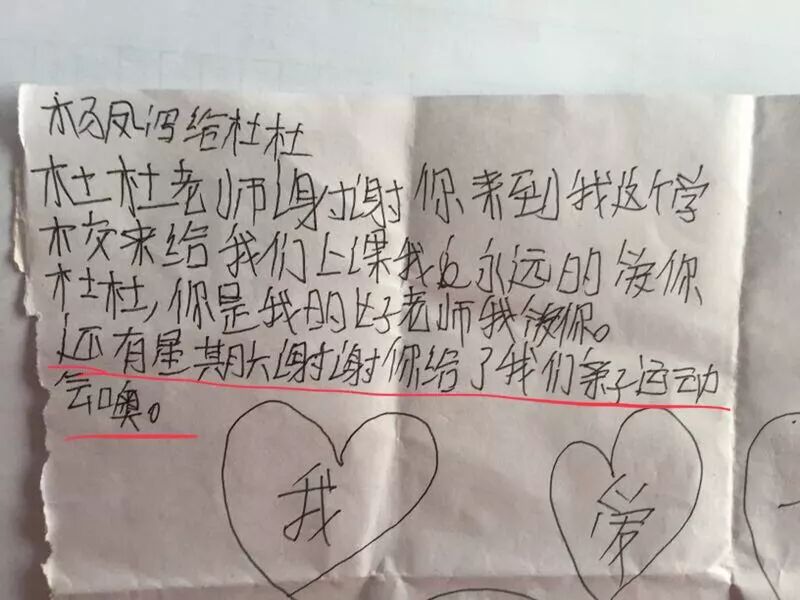 杨凤泻给杜杜
杜杜老师谢谢你来到我这个学
校来给我们上课我会永远的爱你
杜杜，你是我的好老师我爱你。
还有星期六谢谢你给了我们亲子运动
会噢。
我 爱